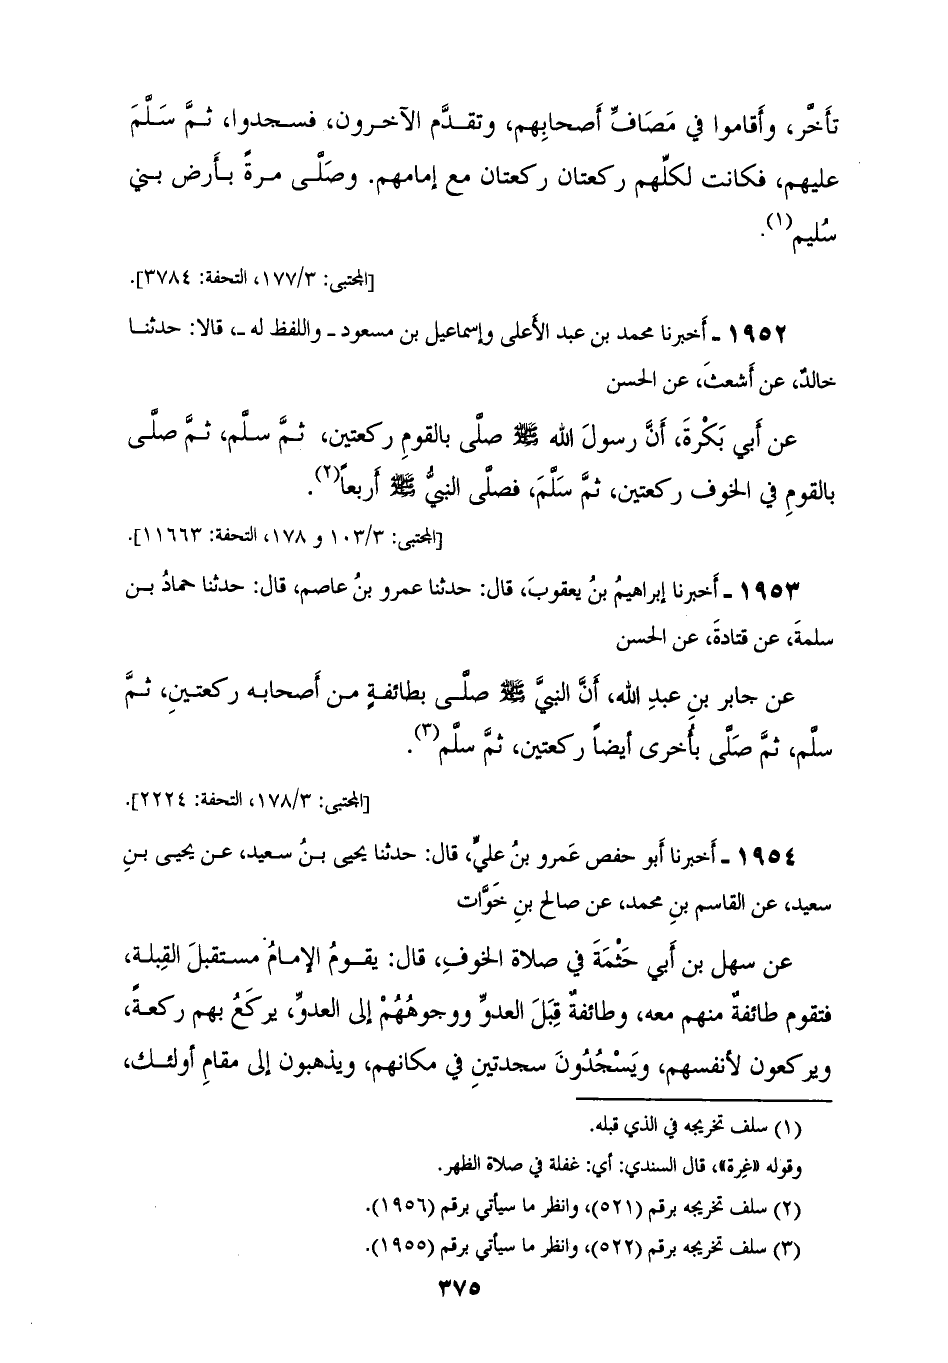 تأخَّر، وأَقاموا في مَصَافِّ أَصحابِهم، وتقـدَّم الآخـرون، فسـجدوا، ثـمَّ سَـلَّمَ
عليهم، فكانت لكلِّهم ركعتان ركعتان مع إمامهم. وصَلَّـى مـرةً بـأَرض بـني
سُليم(١).
[المجتبى: ١٧٧/٣، التحفة: ٣٧٨٤].
١٩٥٢ ـ أَخبرنا محمد بن عبد الأَعلى وإسماعيل بن مسعود ـ واللفظ له ـ، قالا: حدثنـا
خالدٌ، عن أَشعثَ، عن الحسن
عن أَبي بَكْرةَ، أَنَّ رسولَ الله ﷺ صلَّى بالقومِ ركعتين، ثـمَّ سـلَّم، ثـمَّ صلَّـى
بالقومِ في الخوف ركعتين، ثمَّ سَلَّمَ، فصلَّى النبيُّ ﷺ أَربعاً(٢).
[المجتبى: ١٠٣/٣ و ١٧٨، التحفة: ١١٦٦٣].
١٩٥٣ ـ أَخبرنا إبراهيمُ بنُ يعقوبَ، قال: حدثنا عمرو بنُ عاصم، قال: حدثنا حمادُ بـن
سلمةَ، عن قتادةَ، عن الحسن
عن جابر بنِ عبدِ الله، أَنَّ النبيَّ ﷺ صلَّـى بطائفـةٍ مـن أَصحابـه ركعتـينِ، ثـمَّ
سلَّم، ثمَّ صَلَّى بأُخرى أيضاً ركعتين، ثمَّ سلَّم(٣).
[المجتبى: ١٧٨/٣، التحفة: ٢٢٢٤].
١٩٥٤ ـ أَخبرنا أَبو حفص عَمرو بنُ عليٍّ، قال: حدثنا يحيى بـنُ سـعيد، عـن يحيـى بـنِ
سعيد، عن القاسم بنِ محمد، عن صالح بنِ خَوَّات
عن سهل بن أَبي حَثْمَةَ في صلاة الخوفِ، قال: يقـومُ الإمـامُ مسـتقبلَ القِبلـة،
فتقوم طائفةٌ منهم معه، وطائفةٌ قِبَلَ العدوِّ ووجوهُهُمْ إلى العدوِّ، يركَعُ بهم ركعـةً،
ويركعون لأَنفسهم، ويَسْجُدُونَ سجدتينِ في مكانهم، ويذهبون إلى مقامِ أولئـك،
(١) سلف تخريجه في الذي قبله.
وقوله «غِرة»، قال السندي: أي: غفلة في صلاة الظهر.
(٢) سلف تخريجه برقم (٥٢١)، وانظر ما سيأتي برقم (١٩٥٦).
(٣) سلف تخريجه برقم (٥٢٢)، وانظر ما سيأتي برقم (١٩٥٥).
٣٧٥